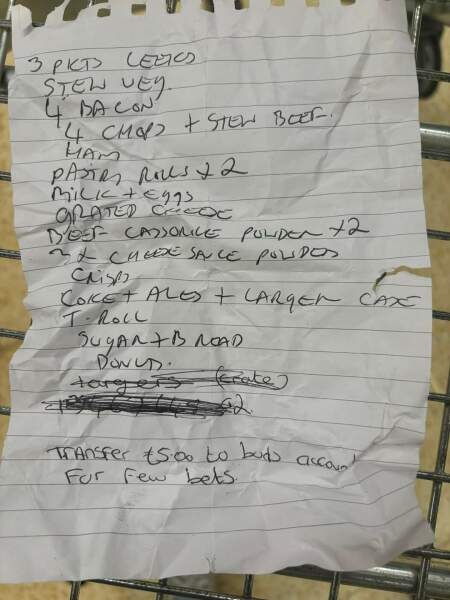 3 PKTS LEEKS
STEW VEY.
4 BACON
4 CHOPS + STEW BEEF.
HAM
PASTRY ROLLS x 2
MILK + EGGS
GRATED CHEESE
BEEF CASSORLE POWDER x2
3 x CHEESE SAUCE POWDERS
CRISPS
COKE + ALES + LARGER CASE
T. ROLL
SUGAR + BREAD
DONUTS.
Largers (crate)
x2
TRANSFER £5.00 to buds account
FOR FEW bets.